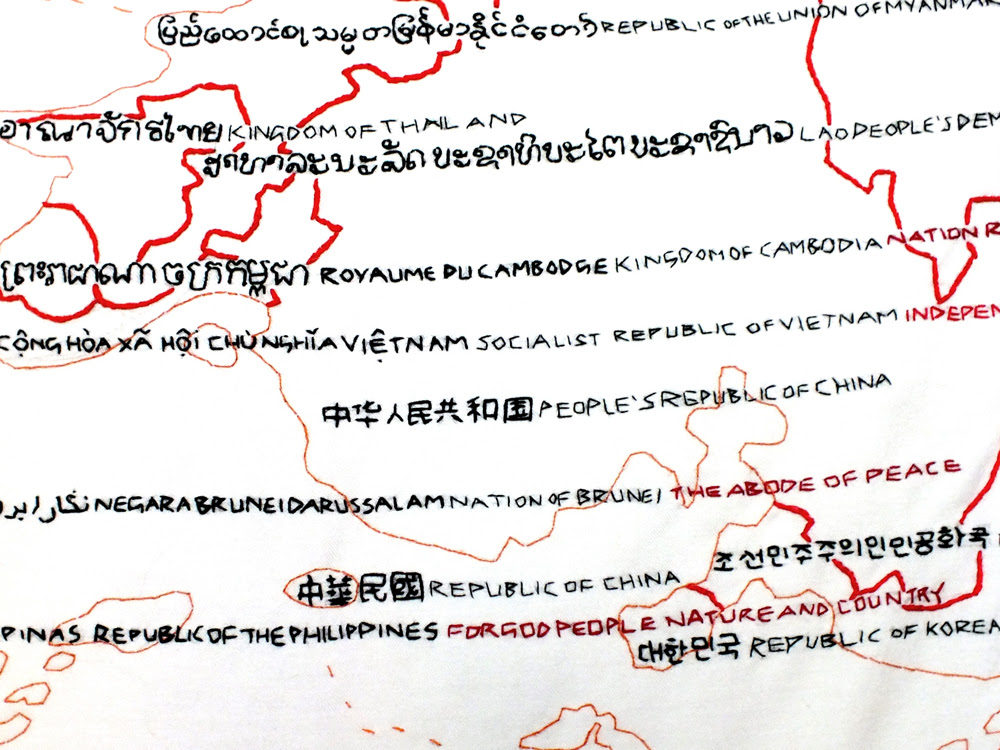 ပြည်ထောင်စု သမ္မတမြန်မာနိုင်ငံတော် REPUBLIC OF THE UNION OF MYANMAR
อาณาจักรไทย KINGDOM OF THAILAND
LAO PEOPLE'S DEM
ព្រះរាជាណាចក្រកម្ពុជា ROYAUME DU CAMBODGE KINGDOM OF CAMBODIA NATION R
CỘNG HÒA XÃ HỘI CHỦ NGHĨA VIỆT NAM SOCIALIST REPUBLIC OF VIETNAM INDEPEN
中华人民共和国 PEOPLE'S REPUBLIC OF CHINA
NEGARA BRUNEI DARUSSALAM NATION OF BRUNEI THE ABODE OF PEACE
조선민주주의인민공화국
中華民國 REPUBLIC OF CHINA
PINAS REPUBLIC OF THE PHILIPPINES FOR GOD PEOPLE NATURE AND COUNTRY
대한민국 REPUBLIC OF KOREA